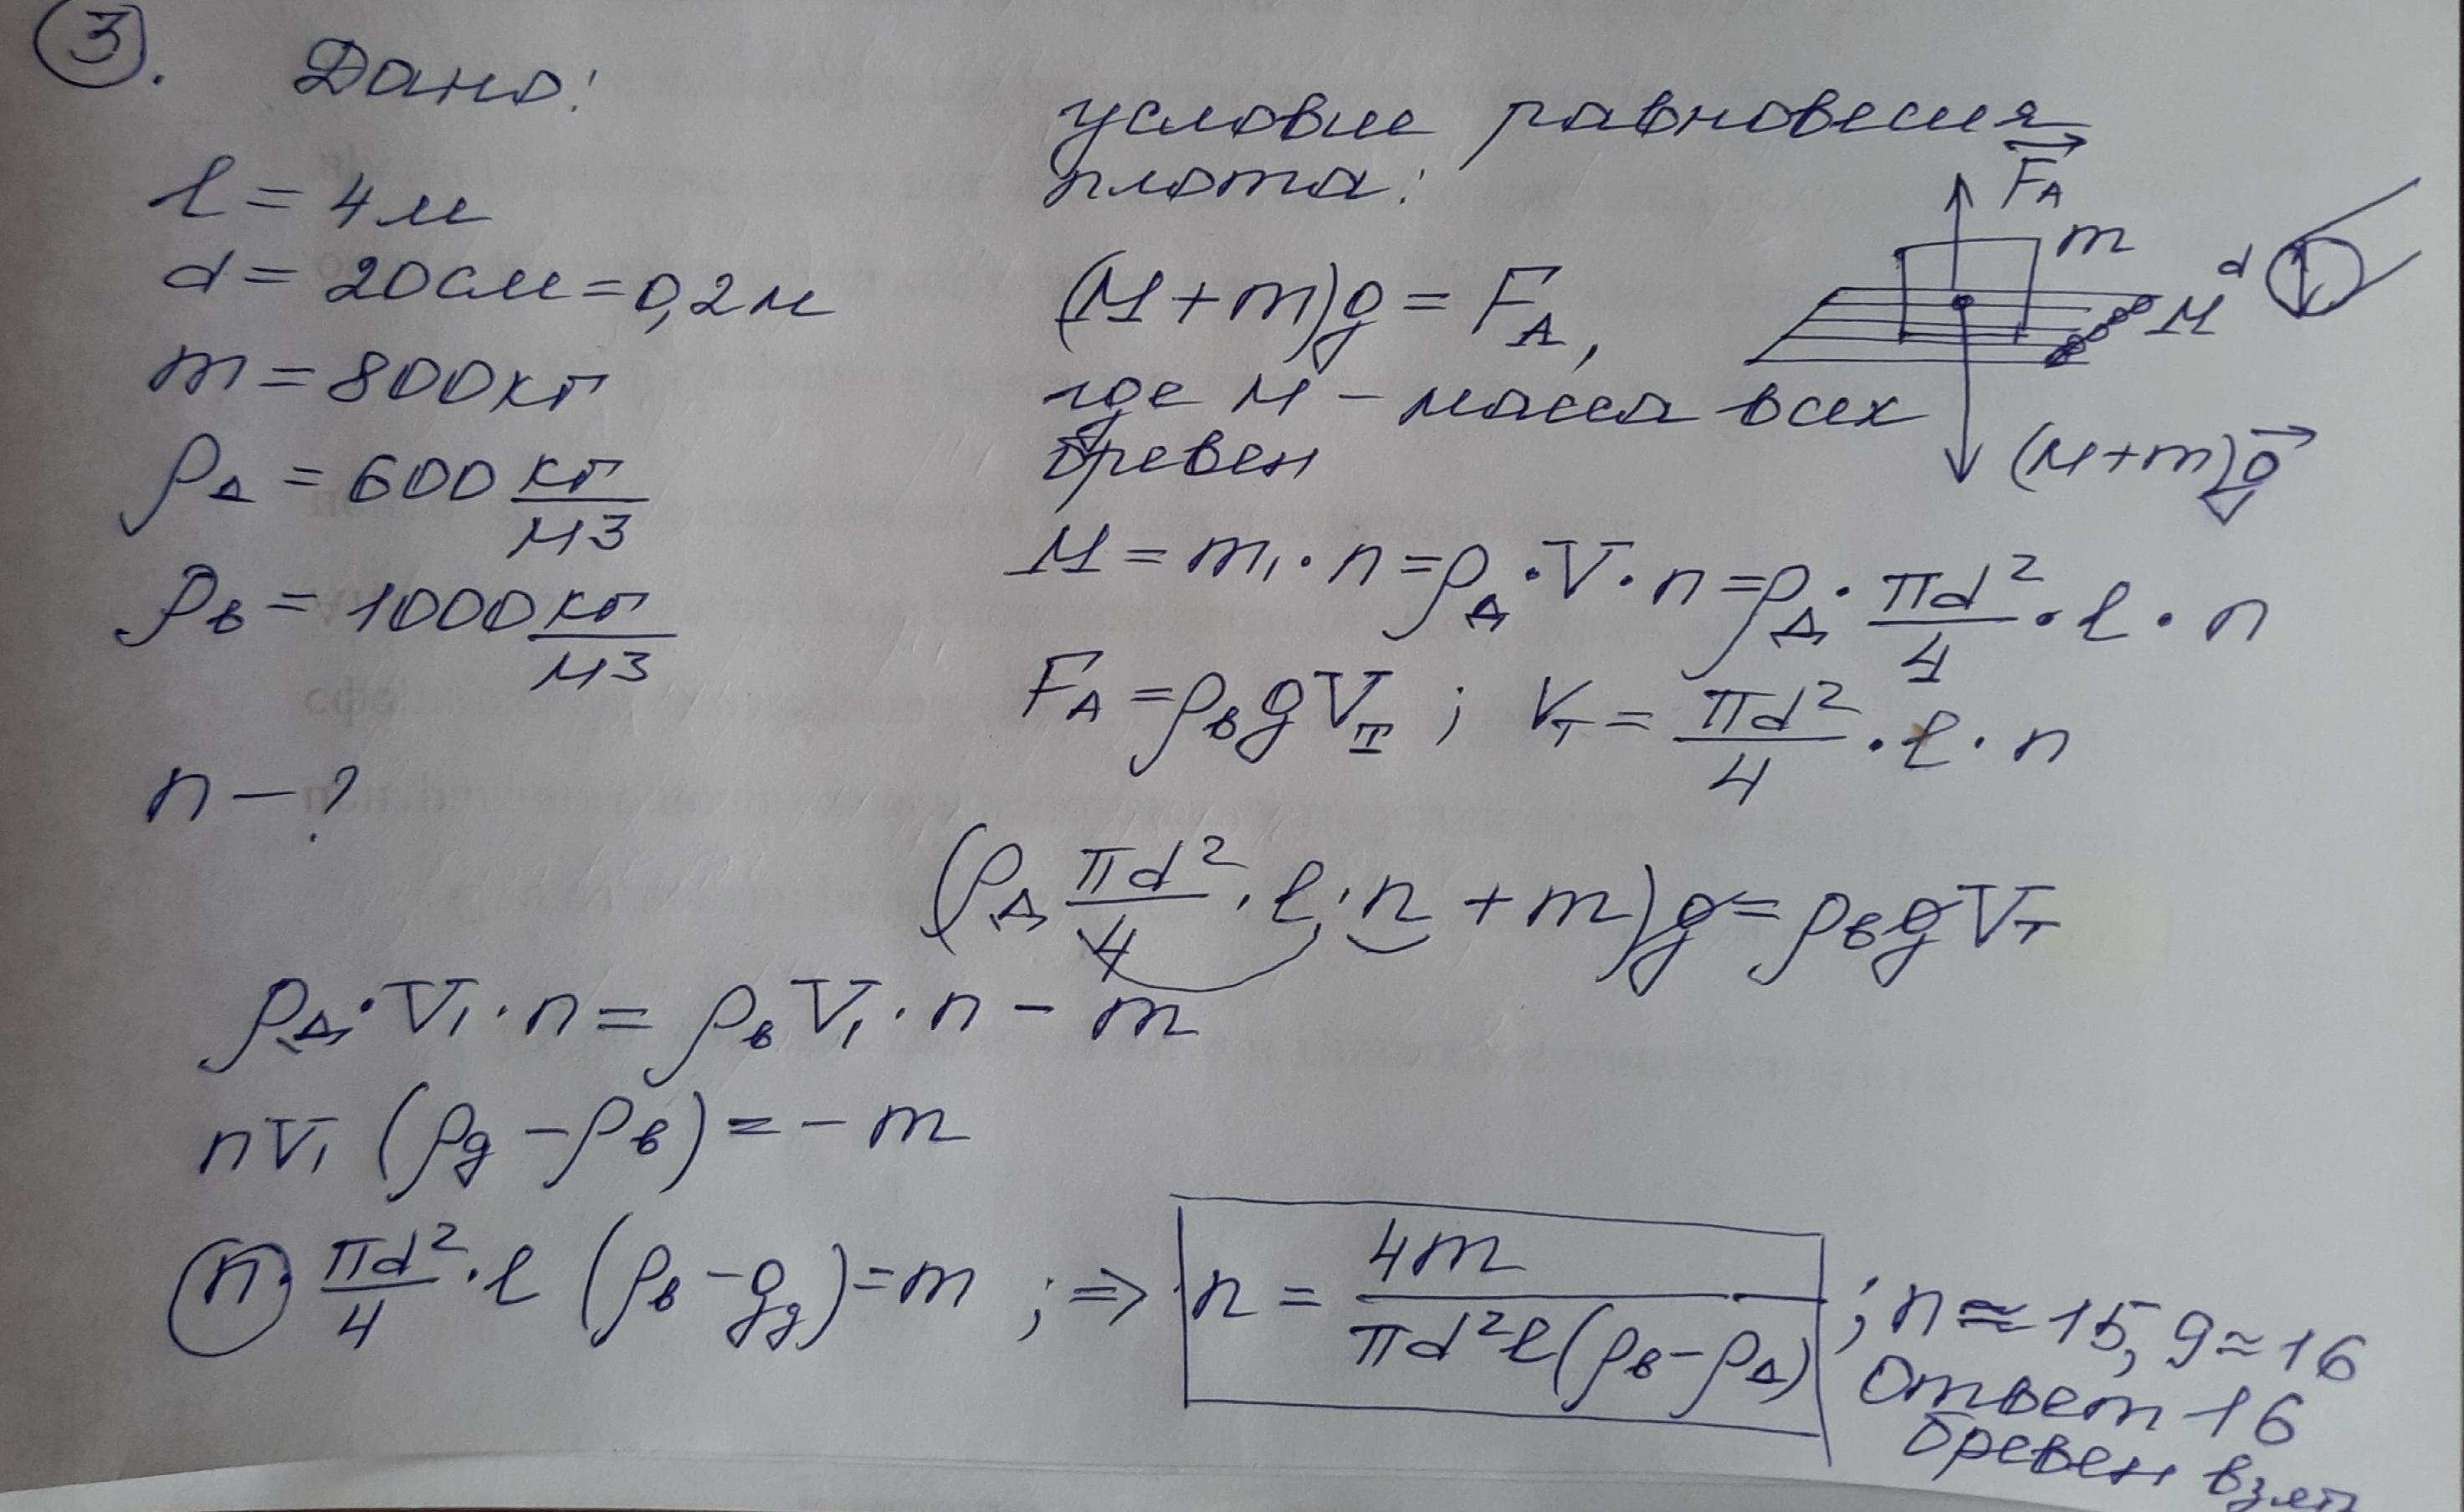 3.
Дано:
l = 4 м
d = 20 см = 0,2 м
m = 800 кг
ρд = 600 кг/м3
ρв = 1000 кг/м3
n - ?
условие равновесия
плота:
(M + m)g = FA,
где M - масса всех
бревен
FA
m
d
M
(M+m)g
M = m₁ · n = ρд · V · n = ρд · πd²/4 · l · n
FA = ρв g Vт ; Vт = πd²/4 · l · n
(ρд πd²/4 · l · n + m)g = ρв g Vт
ρд · V₁ · n = ρв V₁ · n - m
nV₁ (ρg - ρв) = - m
n · πd²/4 · l (ρв - gg) = m ; ⇒ n = 4m/πd²l(ρв - ρд) ; n ≈ 15,9 ≈ 16
Ответ 16
бревен